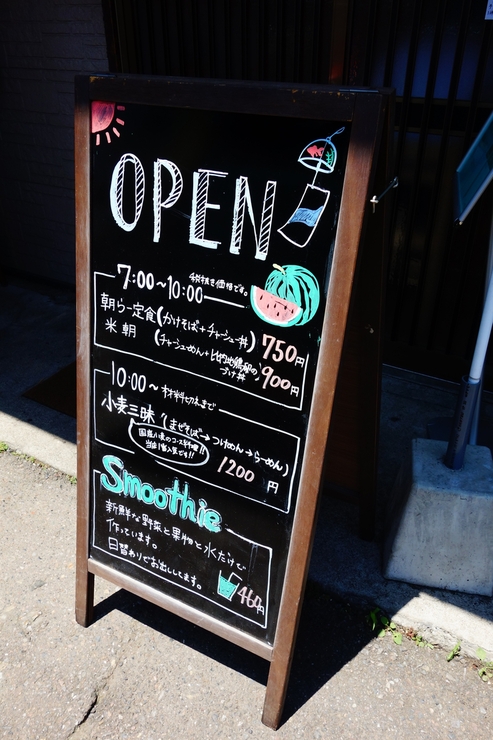 OPEN
7:00~10:00 税抜き価格です。
朝らー定食(かけそば+チャーシュー丼) 750円
米朝 (チャーシューめん+比内地鶏卵の
づけ丼) 900円
10:00~ 材料切れまで
小麦三昧(まぜそば→つけめん→らーめん)
国産小麦のコース料理!!
当店1番人気です!!
1200円
Smoothie
新鮮な野菜と果物と水だけで
作っています。
日替わりでお出ししてます。
460円